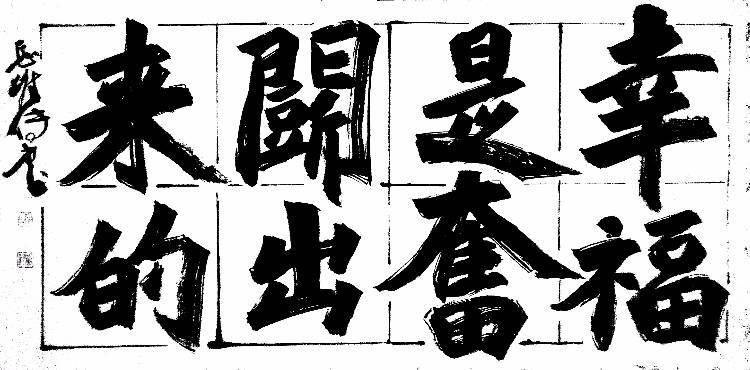 幸福
是奮
鬭出
来的